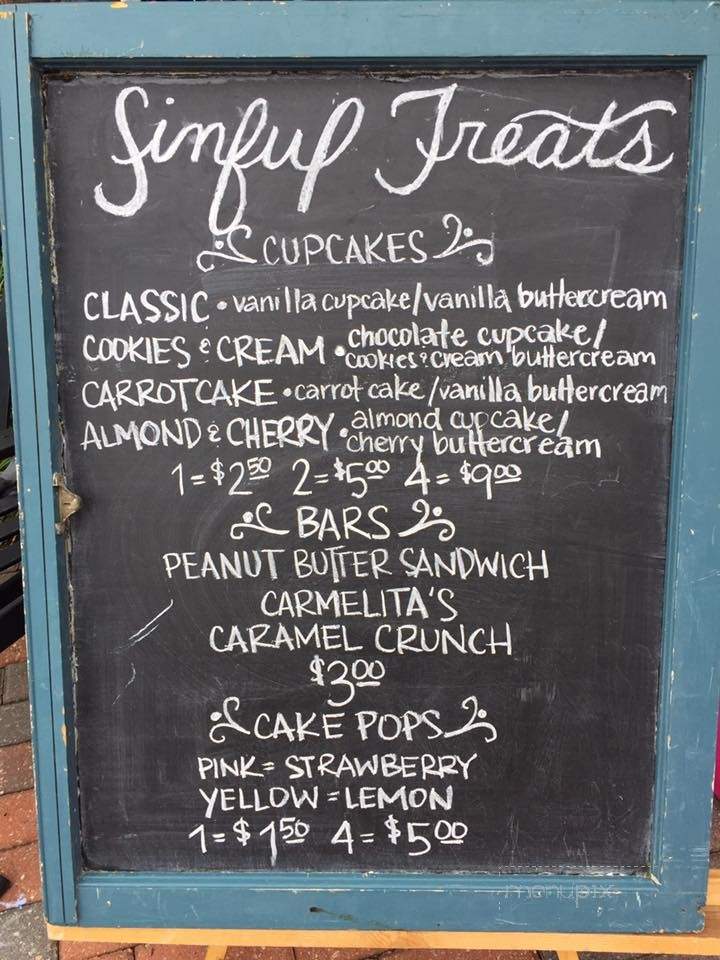 Sinful Treats
CUPCAKES
CLASSIC • vanilla cupcake/vanilla buttercream
COOKIES & CREAM • chocolate cupcake/
cookies & cream buttercream
CARROTCAKE • carrot cake/vanilla buttercream
ALMOND & CHERRY • almond cupcake/
cherry buttercream
1=$2.50 2=$5.00 4=$9.00
BARS
PEANUT BUTTER SANDWICH
CARMELITA'S
CARAMEL CRUNCH
$3.00
CAKE POPS
PINK = STRAWBERRY
YELLOW = LEMON
1=$1.50 4=$5.00
menupix